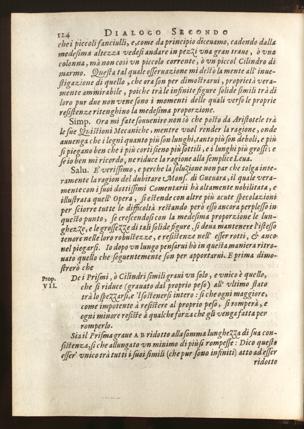 124 DIALOGO SECONDO
che i piccoli fanciulli, e, come da principio diceuamo, cadendo dalla
medesima altezza vedesi andare in pezzi vna gran traue, ò vna
colonna, mà non così vn piccolo corrente, ò vn piccol Cilindro di
marmo. Questa tal quale osseruazione mi destò la mente all' inue-
stigazione di quello, che ora son per dimostrarui, proprietà vera-
mente ammirabile, poiche trà le infinite figure solide simili trà di
loro pur due non vene sono i momenti delle quali verso le proprie
resistenze ritenghino la medesima proporzione.
Simp. Ora mi fate souuenire non sò che posto da Aristotele trà
le sue Quistioni Mecaniche, mentre vuol render la ragione, onde
auuenga che i legni quanto più son lunghi, tanto più son deboli, e più
si piegano ben che i più corti sieno più sottili, e i lunghi più grossi: e
se io ben mi ricordo, ne riduce la ragione alla semplice Leua.
Salu. E' verissimo, e perche la soluzione non par che tolga inte-
ramente la ragion del dubitare Mons. di Gueuara, il quale vera-
mente con i suoi dottissimi Comentarii hà altamente nobilitata, e
illustrata quell' Opera, si estende con altre più acute specolazioni
per sciorre tutte le difficoltà restando però esso ancora perplesso in
questo punto, se crescendosi con la medesima proporzione le lun-
ghezze, e le grossezze di tali solide figure, si deua mantenere l'istesso
tenore nelle loro robustezze, e resistenze nell' esser rotti, & anco
nel piegarsi. Io dopo vn lungo pensarui hò in questa maniera ritro-
uato quello che seguentemente son per apportarui. E prima dimo-
strerò che
Prop.
VII.
De i Prismi, ò Cilindri simili graui vn solo, e vnico è quello,
che si riduce (grauato dal proprio peso) all' vltimo stato
trà lo spezzarsi, e 'l sostenersi intero: sì che ogni maggiore,
come impotente à resistere al proprio peso, si romperà, e
ogni minore resiste à qualche forza che gli venga fatta per
romperlo.
Sia il Prisma graue AB ridotto alla somma lunghezza di sua con-
sistenza, sì che allungato vn minimo di più si rompesse: Dico questo
esser' vnico trà tutti i suoi simili (che pur sono infiniti) atto ad esser
ridotto